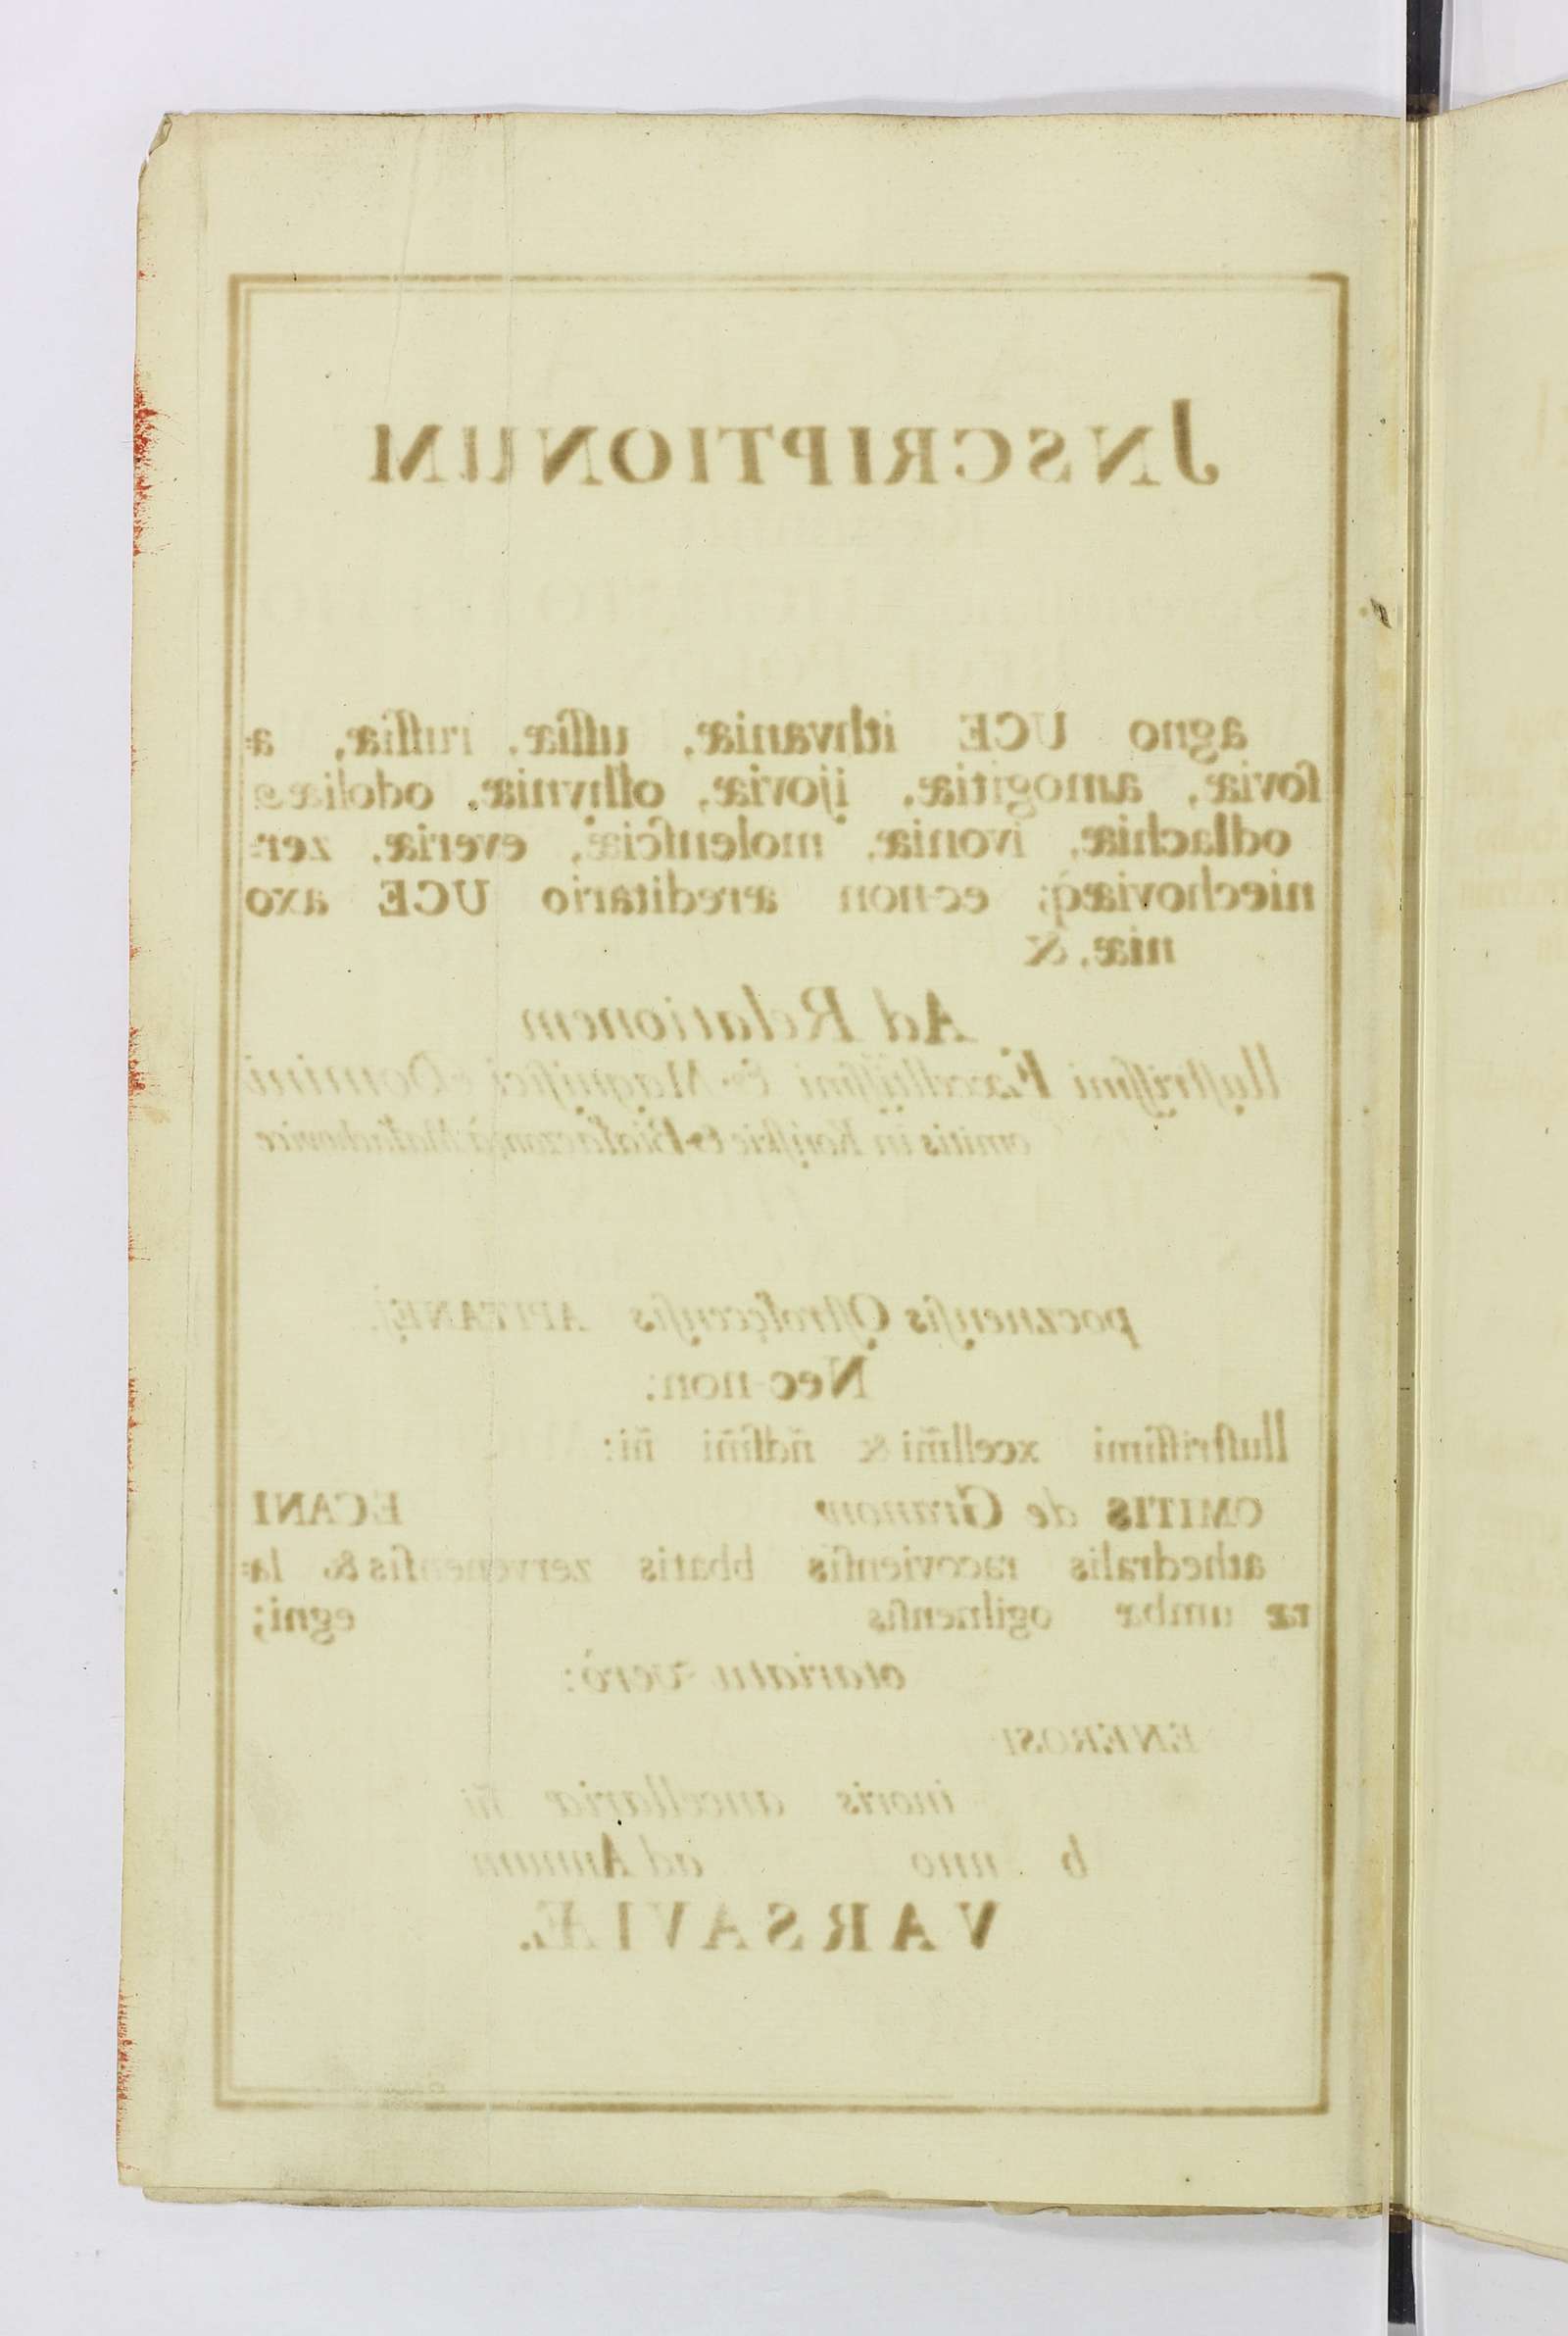 JNSCRIPTIONUM
agno UCE ithvaniæ, uſſiæ, ruſſiæ, a=
ſoviæ, amogitiæ, ijoviæ, olhyniæ, odoliæ
odlachiæ, ivoniæ, molenſciæ, everiæ, zer=
niechoviæq́; ec-non æreditario UCE axo
niæ, &
Ad Relationem
lluſtriſſimi Excellſſimi & Magnifici Domini
omitis in Końſkie & Białaczow Małachowice
pocznenſis Oſtroſęcenſis APITANEJ.
Nec-non:
lluſtriſſimi xcellm̃i & ñdſm̃i ñi:
OMITIS de ECANI
athedralis racovienſis bbatis zervenenſis & la=
ræ umbæ ogilnenſis egni;
otariatu verò:
ENEROSI
inoris ancellariæ
b nno ad Annum
VARSAVIÆ.